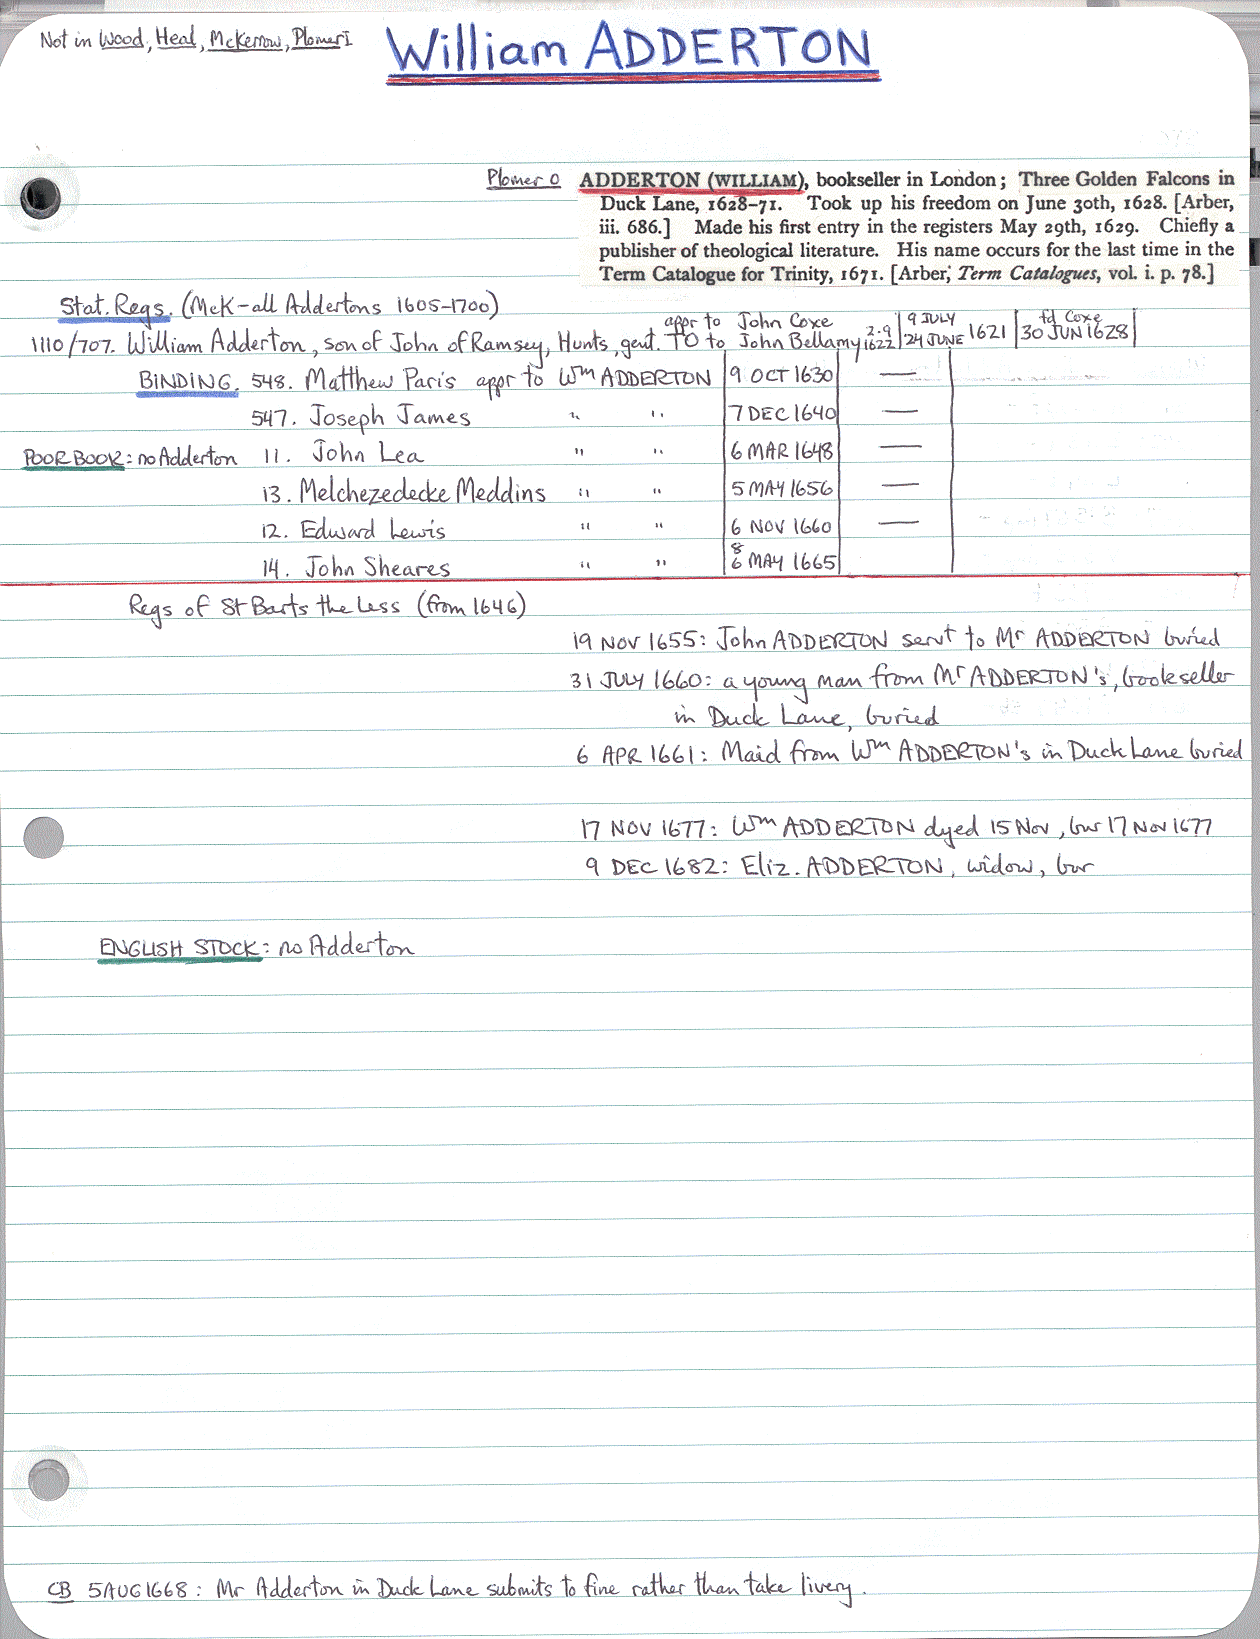 Not in Wood, Heal, McKerrow, Plomer I
William ADDERTON
Plomer O ADDERTON (WILLIAM), bookseller in London; Three Golden Falcons in
Duck Lane, 1628-71. Took up his freedom on June 30th, 1628. [Arber,
iii. 686.] Made his first entry in the registers May 29th, 1629. Chiefly a
publisher of theological literature. His name occurs for the last time in the
Term Catalogue for Trinity, 1671. [Arber, Term Catalogues, vol. i. p. 78.]
Stat. Regs. (McK-all Addertons 1605-1700)
appr to John Coxe 9 JULY fd Coxe
1110/707. William Adderton, son of John of Ramsey, Hunts, gent. TO to John Bellamy 2.9 1622 24 JUNE 1621 30 JUN 1628
BINDING. 548. Matthew Paris appr to Wm ADDERTON 9 OCT 1630 —
547. Joseph James " " 7 DEC 1640 —
POOR BOOK: no Adderton 11. John Lea " " 6 MAR 1648 —
13. Melchezedecke Meddins " " 5 MAY 1656 —
12. Edward Lewis " " 6 NOV 1660 —
8
14. John Sheares " " 6 MAY 1665
Regs of St Barts the Less (from 1646)
19 NOV 1655: John ADDERTON servt to Mr ADDERTON buried
31 JULY 1660: a young man from Mr ADDERTON's, bookseller
in Duck Lane, buried
6 APR 1661: Maid from Wm ADDERTON's in Duck Lane buried
17 NOV 1677: Wm ADDERTON dyed 15 Nov, bur 17 Nov 1677
9 DEC 1682: Eliz. ADDERTON, widow, bur
ENGLISH STOCK: no Adderton
CB 5 AUG 1668: Mr Adderton in Duck Lane submits to fine rather than take livery.